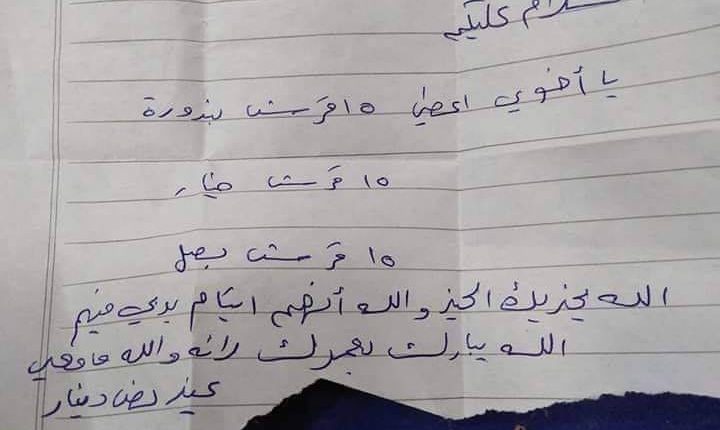 سلام عليكم
يا أخوي اعطي ١٥ قرش بندورة
١٥ قرش خيار
١٥ قرش بصل
الله يجزيك الخير والله أنهم ايتام بدي فيهم
الله يبارك بعمرك لانه والله مامعي
غير نص دينار